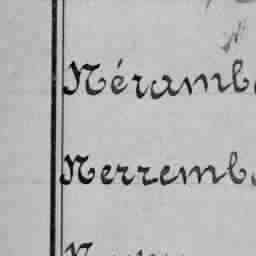 Néramb
Nerremb